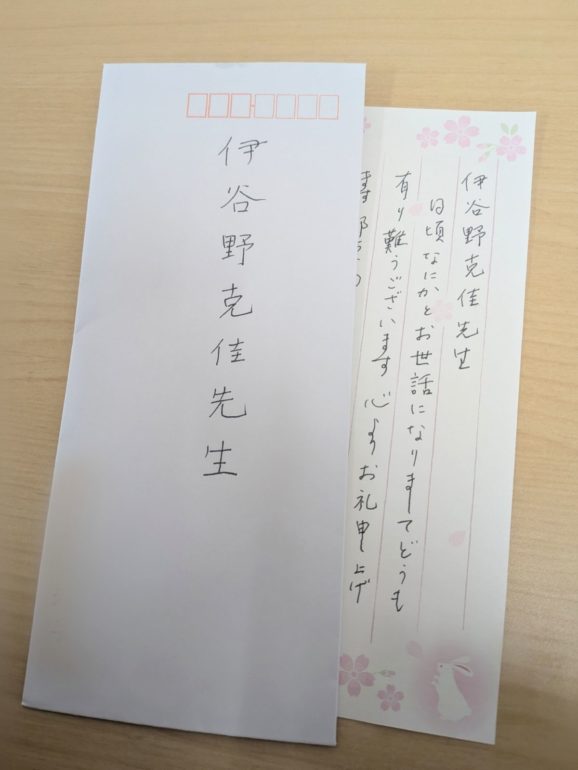 伊谷野克佳先生
伊谷野克佳先生
日頃なにかとお世話になりましてどうも
有り難うございます 心よりお礼申上げ
ます